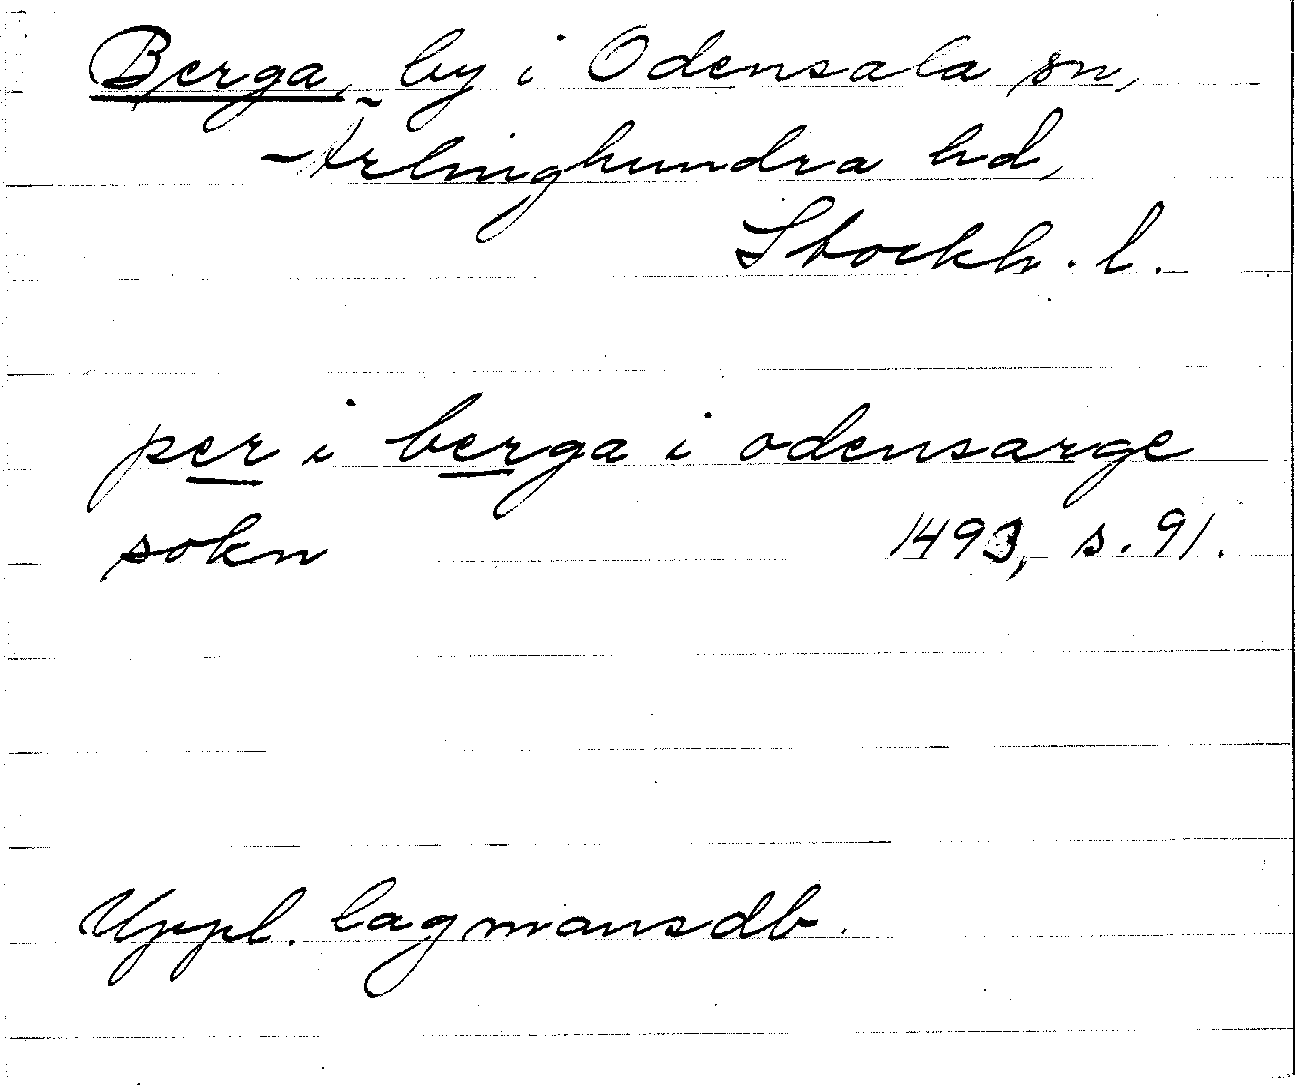 Berga, by i Odensala sn,
Ärlinghundra hd,
Stockh. l.
per i berga i odensarge
sokn 1493, s. 91.
Uppl. lagmansdb.